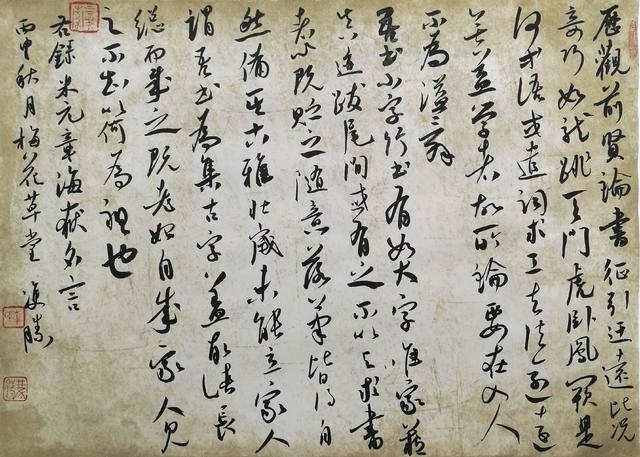 歷觀前賢論書征引迂遠比况
奇巧如龍跳天門虎卧鳳闕是
何等語或遣詞求工去法逾遠
無益學者故所論要在入人
不為溢辭
吾書小字行書有如大字唯家藏
真跡跋尾間或有之不以與求書
者心既貯之隨意落筆皆得自
然備其古雅壯歲未能立家人
謂吾書為集古字蓋取諸長
總而成之既老始自成家人見
之不知以何為祖也
右錄米元章海嶽名言
丙申秋月梅花草堂